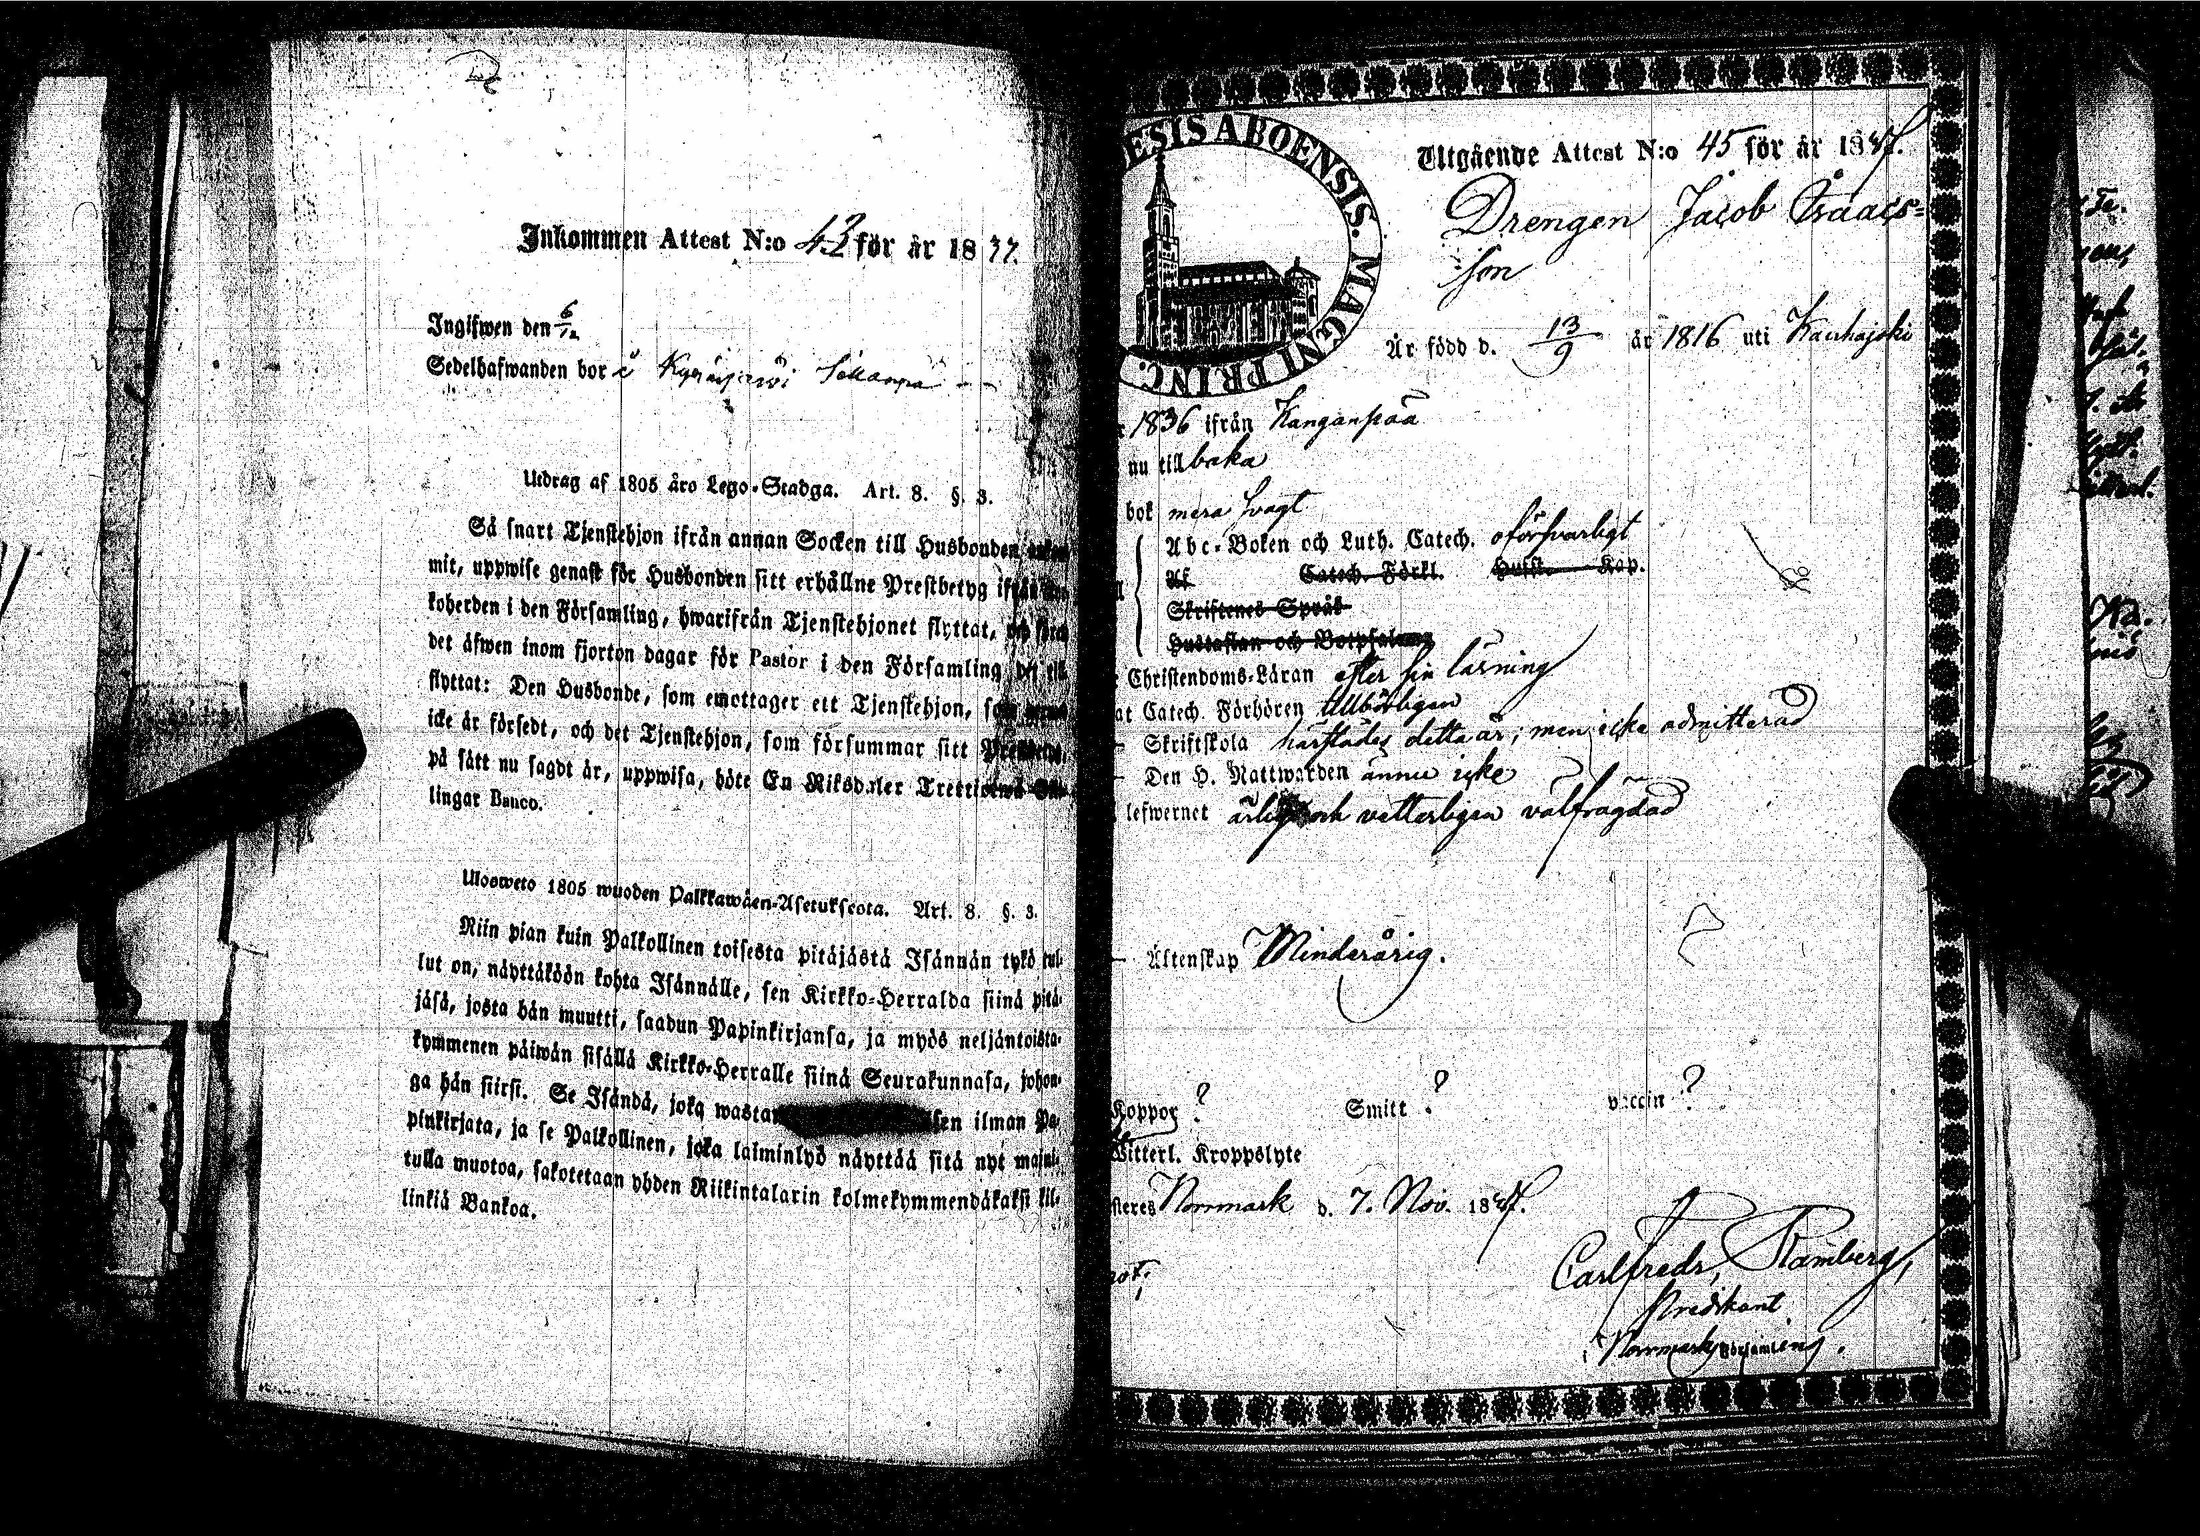 Inkommen Attest N:o 42 för år 1837.
Ingifwen den 6/12
Sedelhafwanden bor i Kyröjärwi
Utdrag af 1805 åro Lego-Stadga. Art. 8. §. 3.
Så snart Tjenstehjon ifrån annan Socken till Husbonden
mit, uppwise genast för Husbonden sitt erhållne Prestbetyg ifrån
koherden i den Församling, hwarifrån Tjenstehjonet flyttat,
det äfwen inom fjorton dagar för Pastor i den Församling det
flyttat: Den Husbonde, som emottager ett Tjenstehjon, som
icke är försedt, och det Tjenstehjon, som försummar sitt
på sätt nu sagdt är, uppwisa, böte En Riksdaler
lingar Banco.
Ulosweto 1805 wuoden Palkkawäen-Asetuksesta. Art. 8. §. 3.
Niin pian kuin Palkollinen toisesta pitäjästä Isännän tykö tul-
lut on, näyttäköön kohta Isännälle, sen Kirkko-Herralda siinä pitä-
jäsä, josta hän muutti, saadun Papinkirjansa, ja myös neljäntoista-
kymmenen päiwän sisällä Kirkko-Herralle siinä Seurakunnasa, johon-
ga hän siirsi. Se Isändä, joka wastan sen ilman Pa-
pinkirjata, ja se Palkollinen, joka laiminlyö näyttää sitä nyt maini-
tulla muotoa, sakotetaan yhden Riikintalarin kolmekymmendäkaksi kil-
linkiä Bankoa.
ESIS ABOENSIS. MAGNI PRINC.
Utgående Attest N:o 45 för år 1837.
Drengen Jacob Isaacs-
son
Är född d. 13/9 år 1816 uti Kauhajoki
1836 ifrån Kanganpää
nu tillbaka
bok mera svagt
Abc-Boken och Luth. Catech. oförsvarligt
Af Catech. Förkl. Hufst. Kap.
Skriftenes Språk
Hustaflan och Botpsalmen
Christendoms-Läran efter sin läsning
at Catech. Förhören tillbörligen
Skriftskola härstädes detta år; men icke admitterad
Den H. Nattwarden ännu icke
lefwernet ärlig och vetterligen välfrägdad
Äktenskap Minderårig.
Koppor ? Smitt ? vaccin ?
Witterl. Kroppslyte
steres Norrmark d. 7. Nov. 1837.
not:
Carlfredr, Stamberg,
Predikant
Norrmarks Församling.